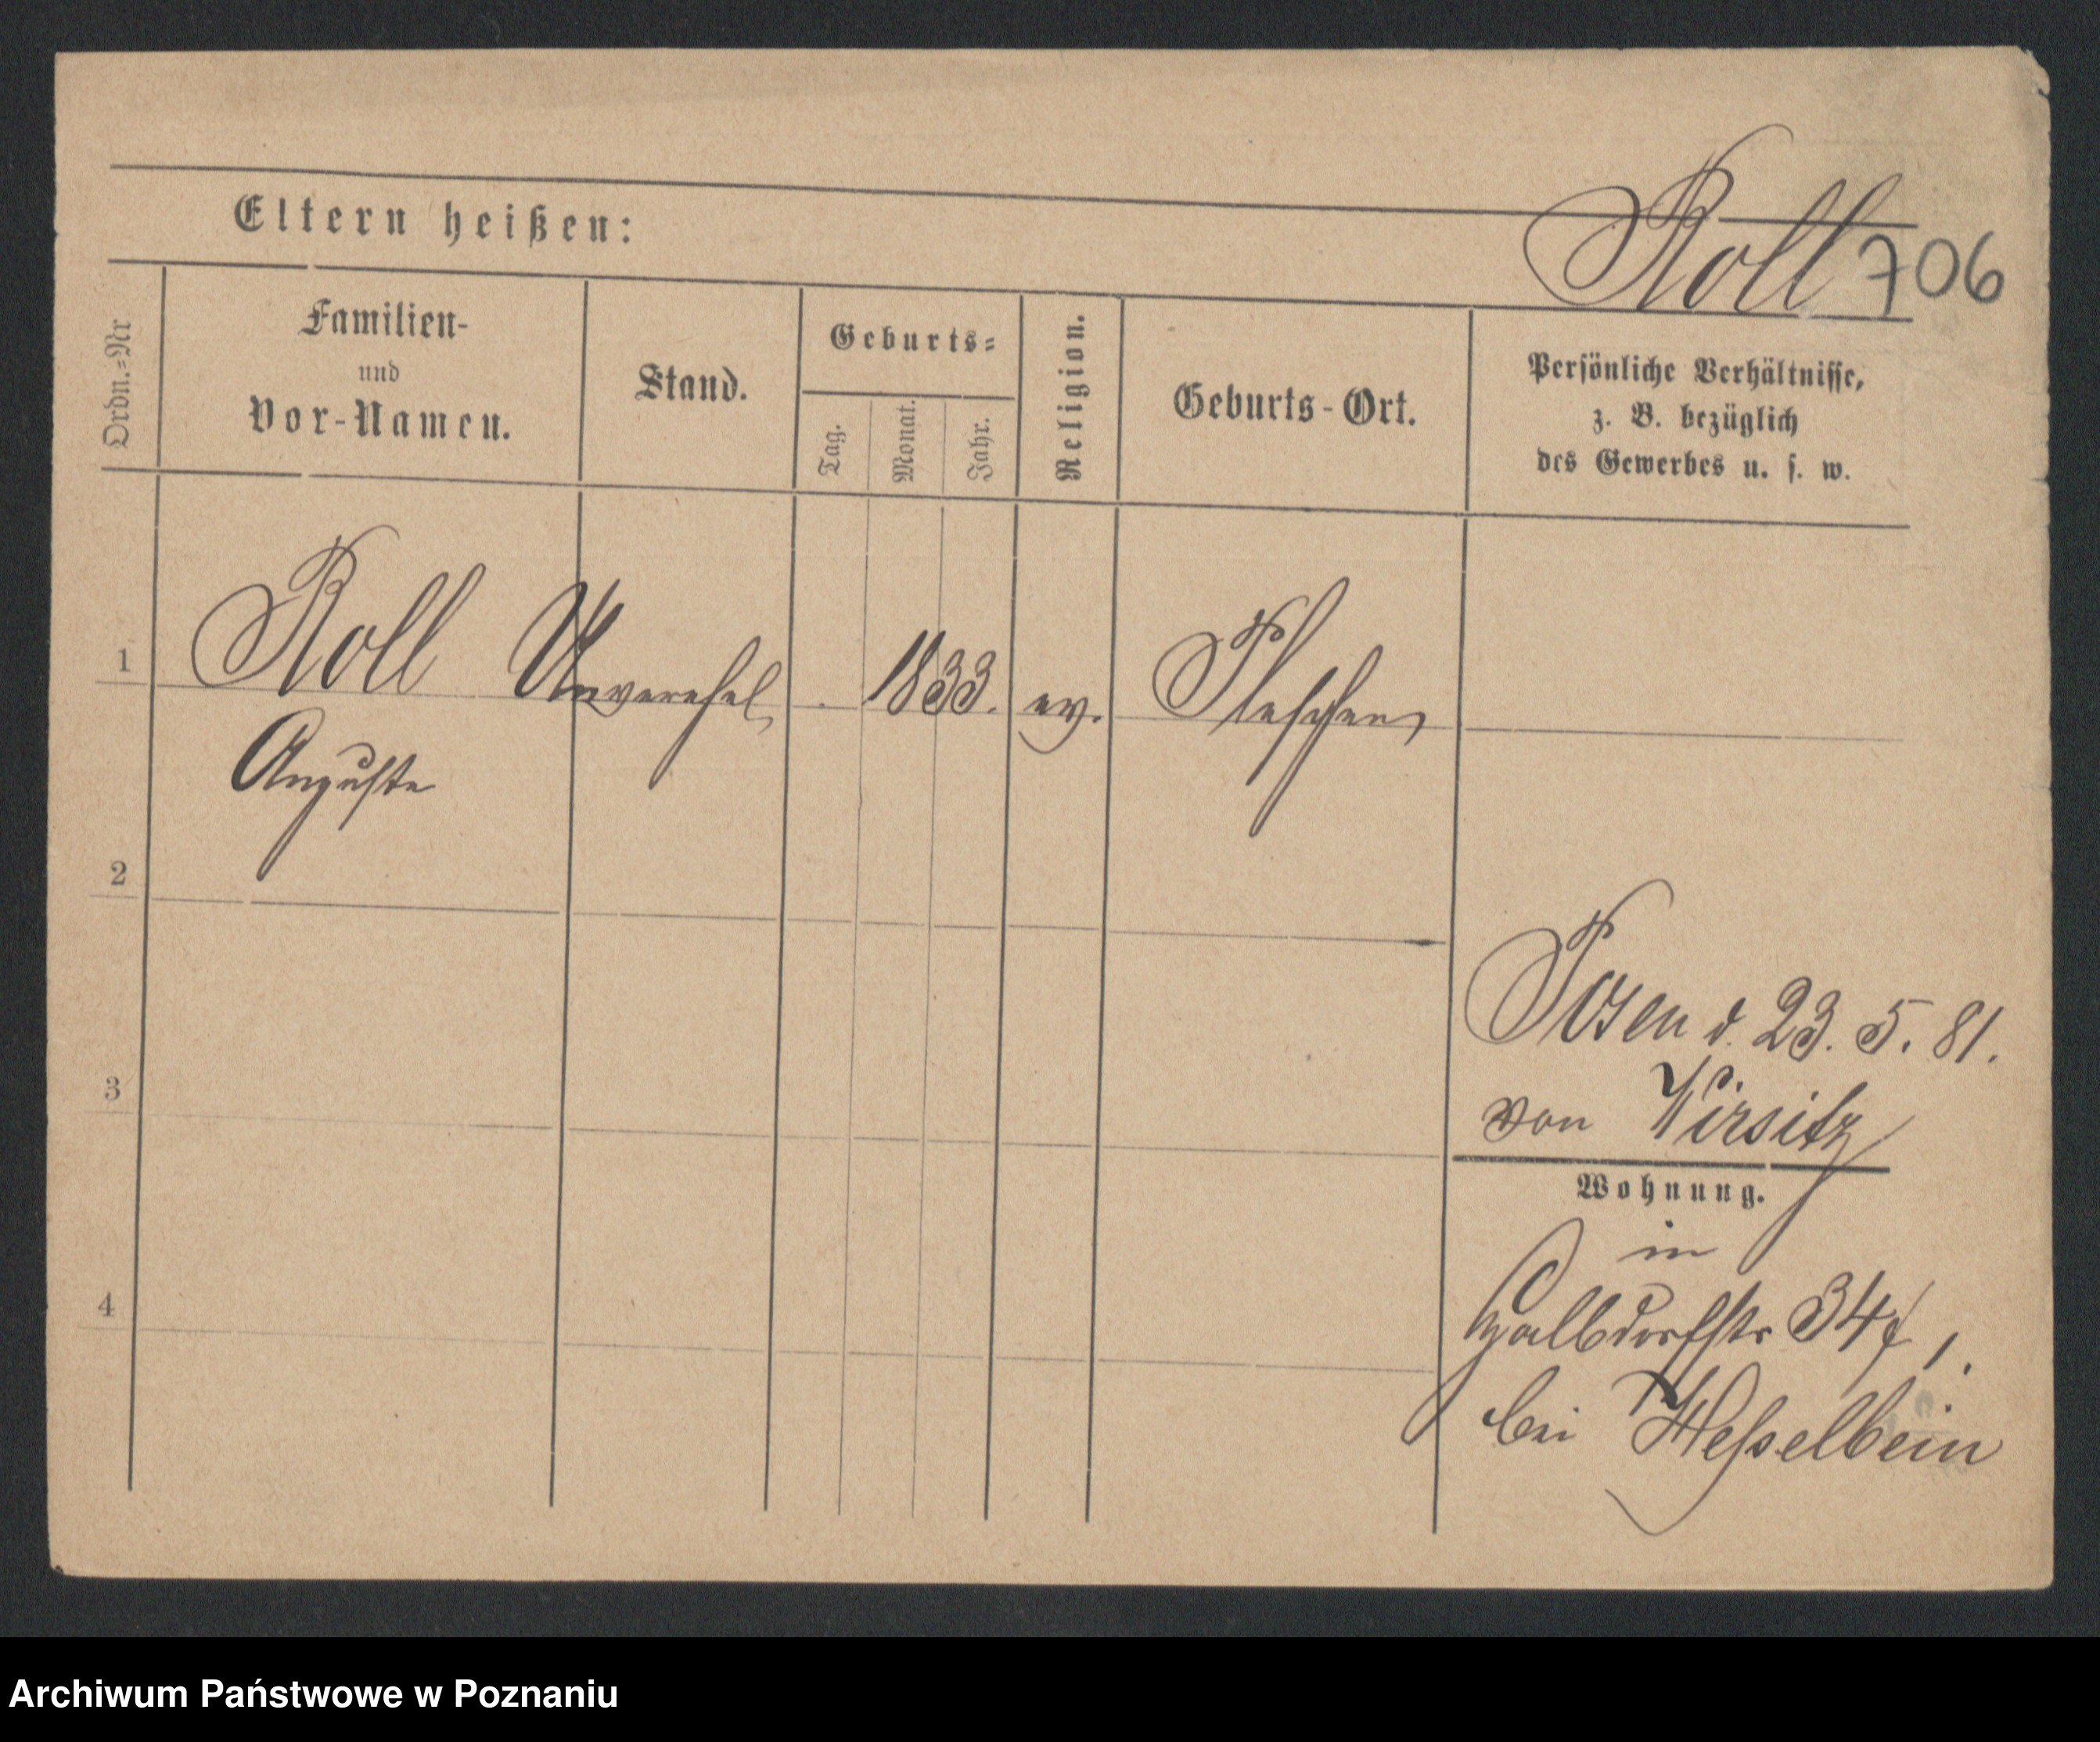 Roll 706
Eltern heißen:
Ordn.=Nr
Familien-
und
Vor-Namen.
Stand.
Geburts=
Tag.
Monat.
Jahr.
Religion.
Geburts-Ort.
Persönliche Verhältnisse,
z. B. bezüglich
des Gewerbes u. s. w.
1 Roll Unverehel. 1833. ev. Pleschen
Auguste
2
3
4
Posen d. 23. 5. 81.
von Wirsitz
Wohnung.
in
Halbdorfstr 34
bei Hesselbein
Archiwum Państwowe w Poznaniu